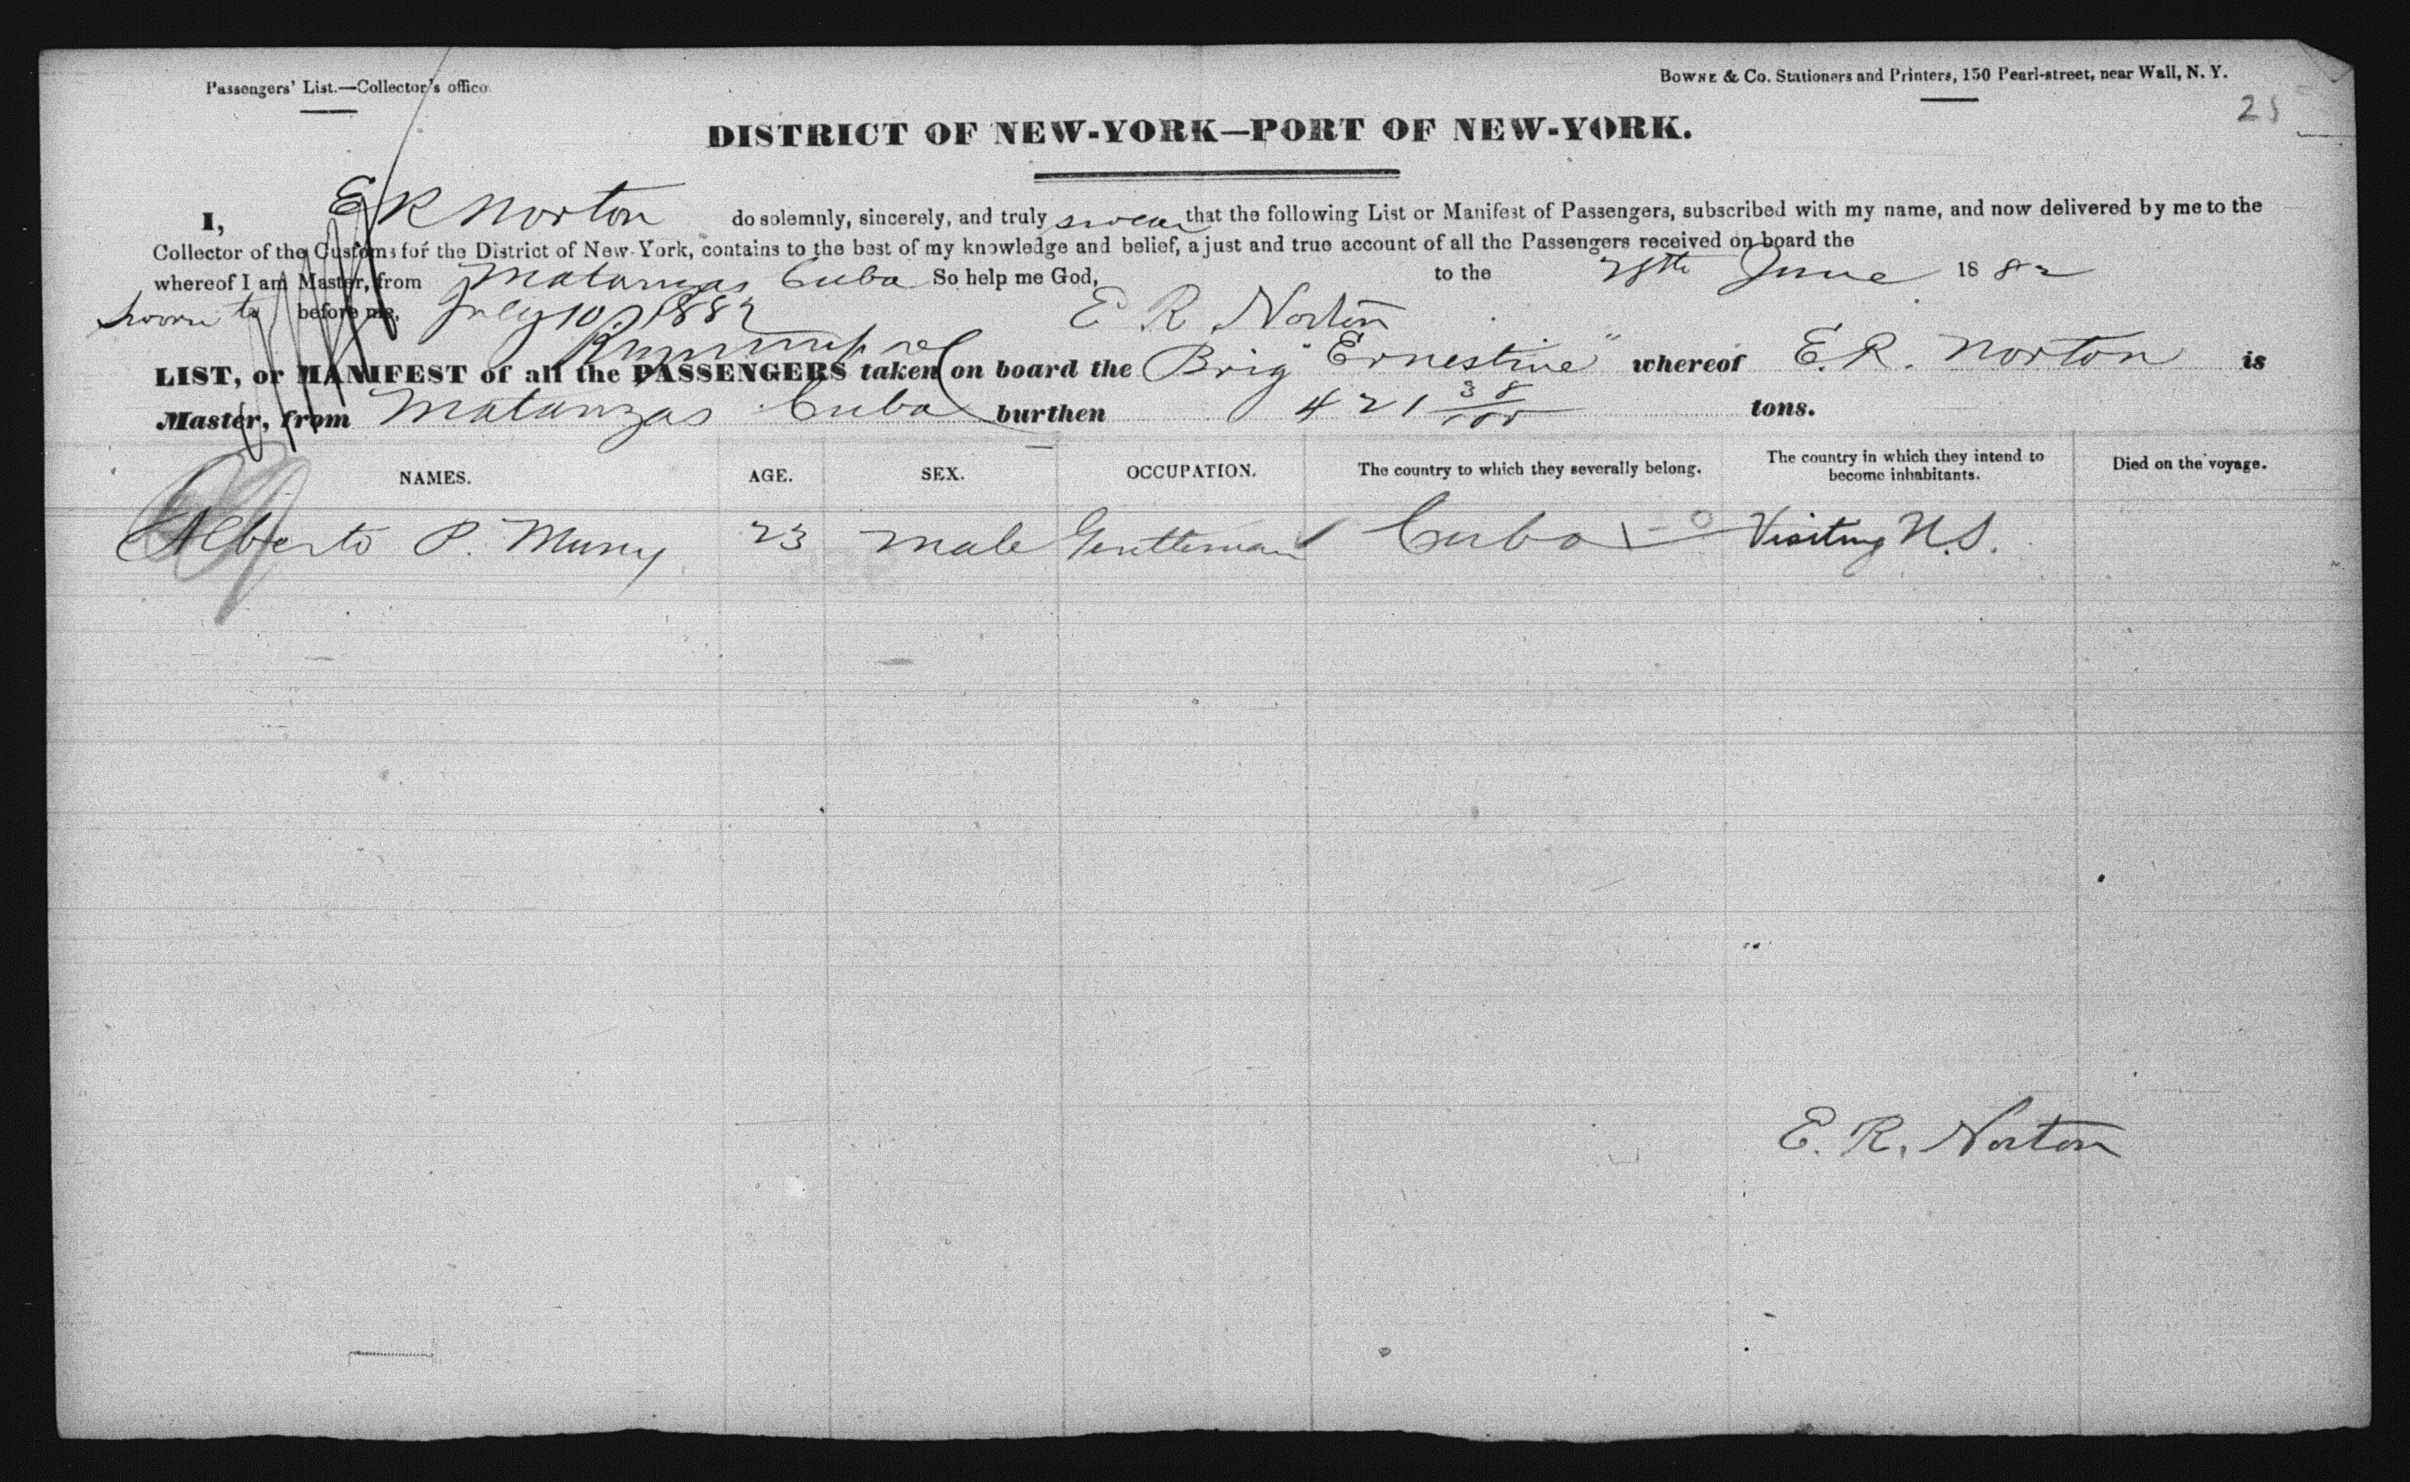 Passengers' List.—Collector's office.
Bowne & Co. Stationers and Printers, 150 Pearl-street, near Wall, N. Y.
25
DISTRICT OF NEW-YORK—PORT OF NEW-YORK.
I, E R Norton do solemnly, sincerely, and truly swear that the following List or Manifest of Passengers, subscribed with my name, and now delivered by me to the
Collector of the Customs for the District of New-York, contains to the best of my knowledge and belief, a just and true account of all the Passengers received on board the
whereof I am Master, from Matanzas Cuba So help me God, to the 28th June 1882
Sworn to before me, July 10 1882 E R Norton
LIST, or MANIFEST of all the PASSENGERS taken on board the Brig "Ernestine" whereof E. R. Norton is
Master, from Matanzas Cuba burthen 421 38/100 tons.
NAMES. AGE. SEX. OCCUPATION. The country to which they severally belong. The country in which they intend to become inhabitants. Died on the voyage.
Alberto P. 23 male Gentleman Cuba Visiting U.S.
E. R. Norton